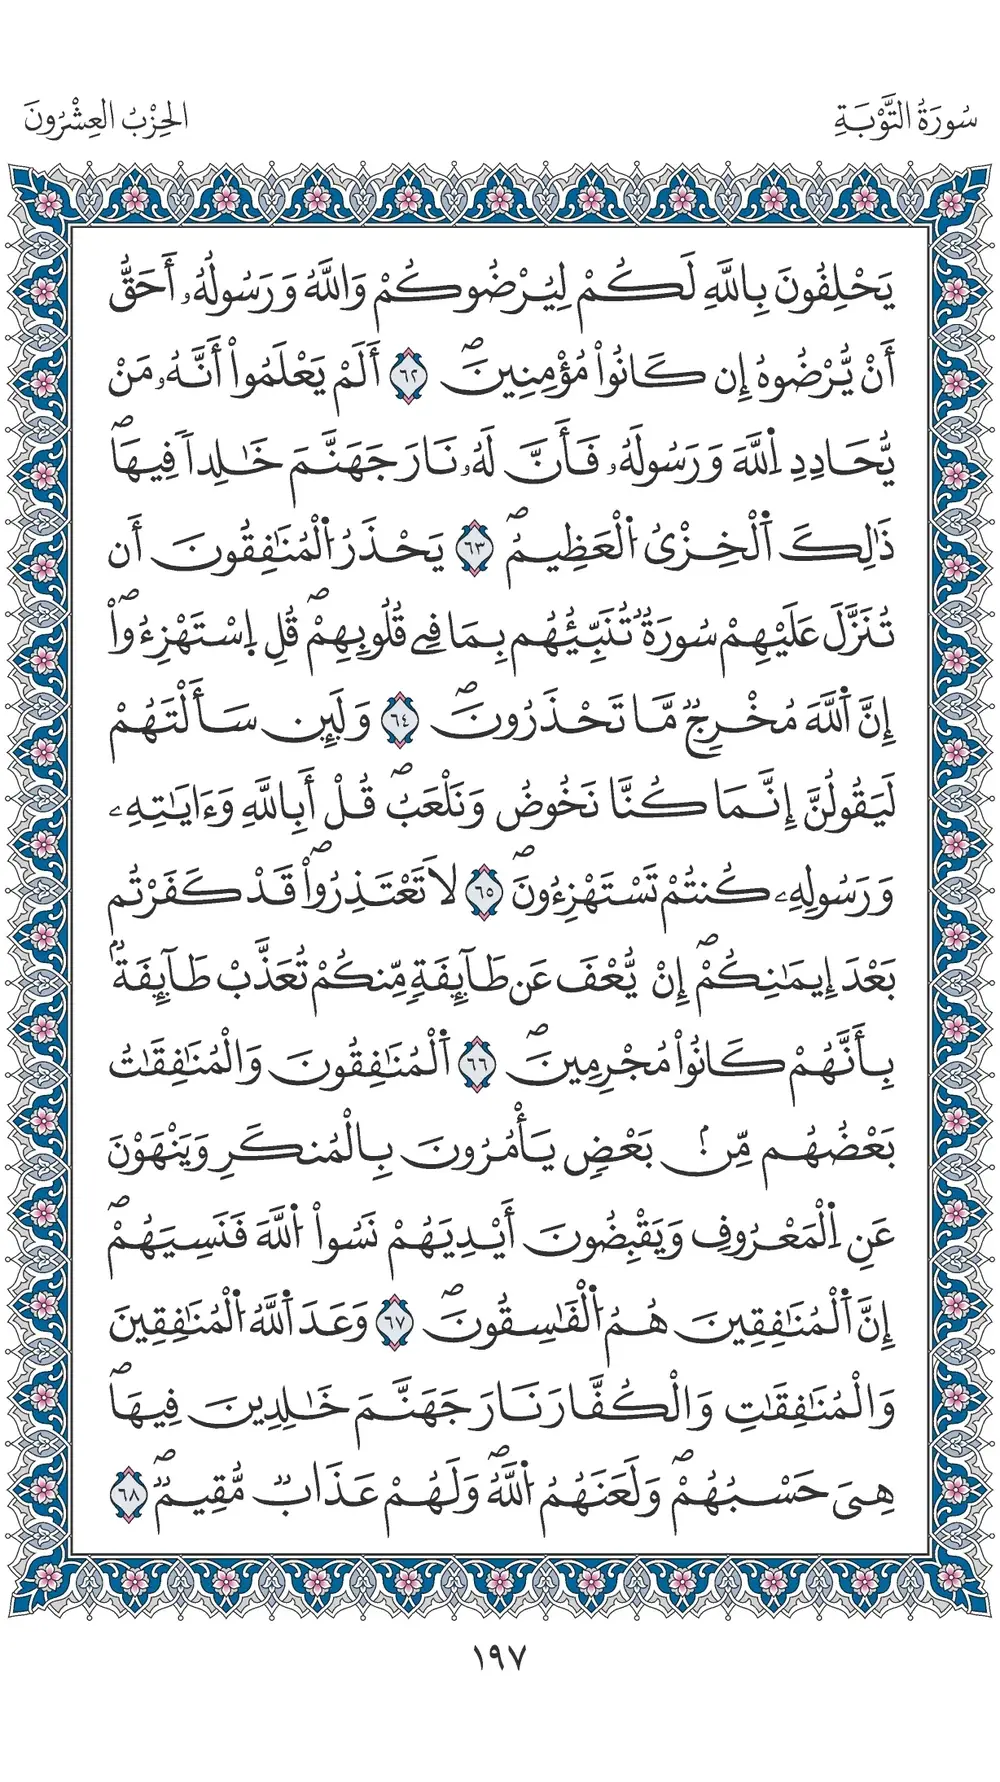 سُورَةُ التَّوْبَةِ
الحِزْبُ العِشْرُونَ
يَحْلِفُونَ بِاللَّهِ لَكُمْ لِيُرْضُوكُمْ وَاللَّهُ وَرَسُولُهُۥ أَحَقُّ
أَنْ يُّرْضُوهُ إِن كَانُواْ مُؤْمِنِينَۖ ٦٢ أَلَمْ يَعْلَمُواْ أَنَّهُۥ مَنْ
يُّحَادِدِ اِللَّهَ وَرَسُولَهُۥ فَأَنَّ لَهُۥ نَارَ جَهَنَّمَ خَٰلِداٗ فِيهَاۖ
ذَٰلِكَ اَ۬لْخِزْيُ اُ۬لْعَظِيمُۖ ٦٣ يَحْذَرُ اُ۬لْمُنَٰفِقُونَ أَن
تُنَزَّلَ عَلَيْهِمْ سُورَةٞ تُنَبِّئُهُم بِمَا فِے قُلُوبِهِمْۖ قُلِ اِ۪سْتَهْزِءُوٓاْۖ
إِنَّ اَ۬للَّهَ مُخْرِجٞ مَّا تَحْذَرُونَۖ ٦٤ وَلَئِن سَأَلْتَهُمْ
لَيَقُولُنَّ إِنَّمَا كُنَّا نَخُوضُ وَنَلْعَبُۖ قُلْ أَبِاللَّهِ وَءَايَٰتِهِۦ
وَرَسُولِهِۦ كُنتُمْ تَسْتَهْزِءُونَۖ ٦٥ لَا تَعْتَذِرُواْۖ قَدْ كَفَرْتُم
بَعْدَ إِيمَٰنِكُمْۖ إِنْ يُّعْفَ عَن طَآئِفَةٖ مِّنكُمْ تُعَذَّبْ طَآئِفَةُۢ
بِأَنَّهُمْ كَانُواْ مُجْرِمِينَۖ ٦٦ اَ۬لْمُنَٰفِقُونَ وَالْمُنَٰفِقَٰتُ
بَعْضُهُم مِّنۢ بَعْضٖ يَأْمُرُونَ بِالْمُنكَرِ وَيَنْهَوْنَ
عَنِ اِ۬لْمَعْرُوفِ وَيَقْبِضُونَ أَيْدِيَهُمْ نَسُواْ اُ۬للَّهَ فَنَسِيَهُمْۖ
إِنَّ اَ۬لْمُنَٰفِقِينَ هُمُ اُ۬لْفَٰسِقُونَۖ ٦٧ وَعَدَ اَ۬للَّهُ اُ۬لْمُنَٰفِقِينَ
وَالْمُنَٰفِقَٰتِ وَالْكُفَّارَ نَارَ جَهَنَّمَ خَٰلِدِينَ فِيهَاۖ
هِيَ حَسْبُهُمْۖ وَلَعَنَهُمُ اُ۬للَّهُۖ وَلَهُمْ عَذَابٞ مُّقِيمٞۖ ٦٨
١٩٧